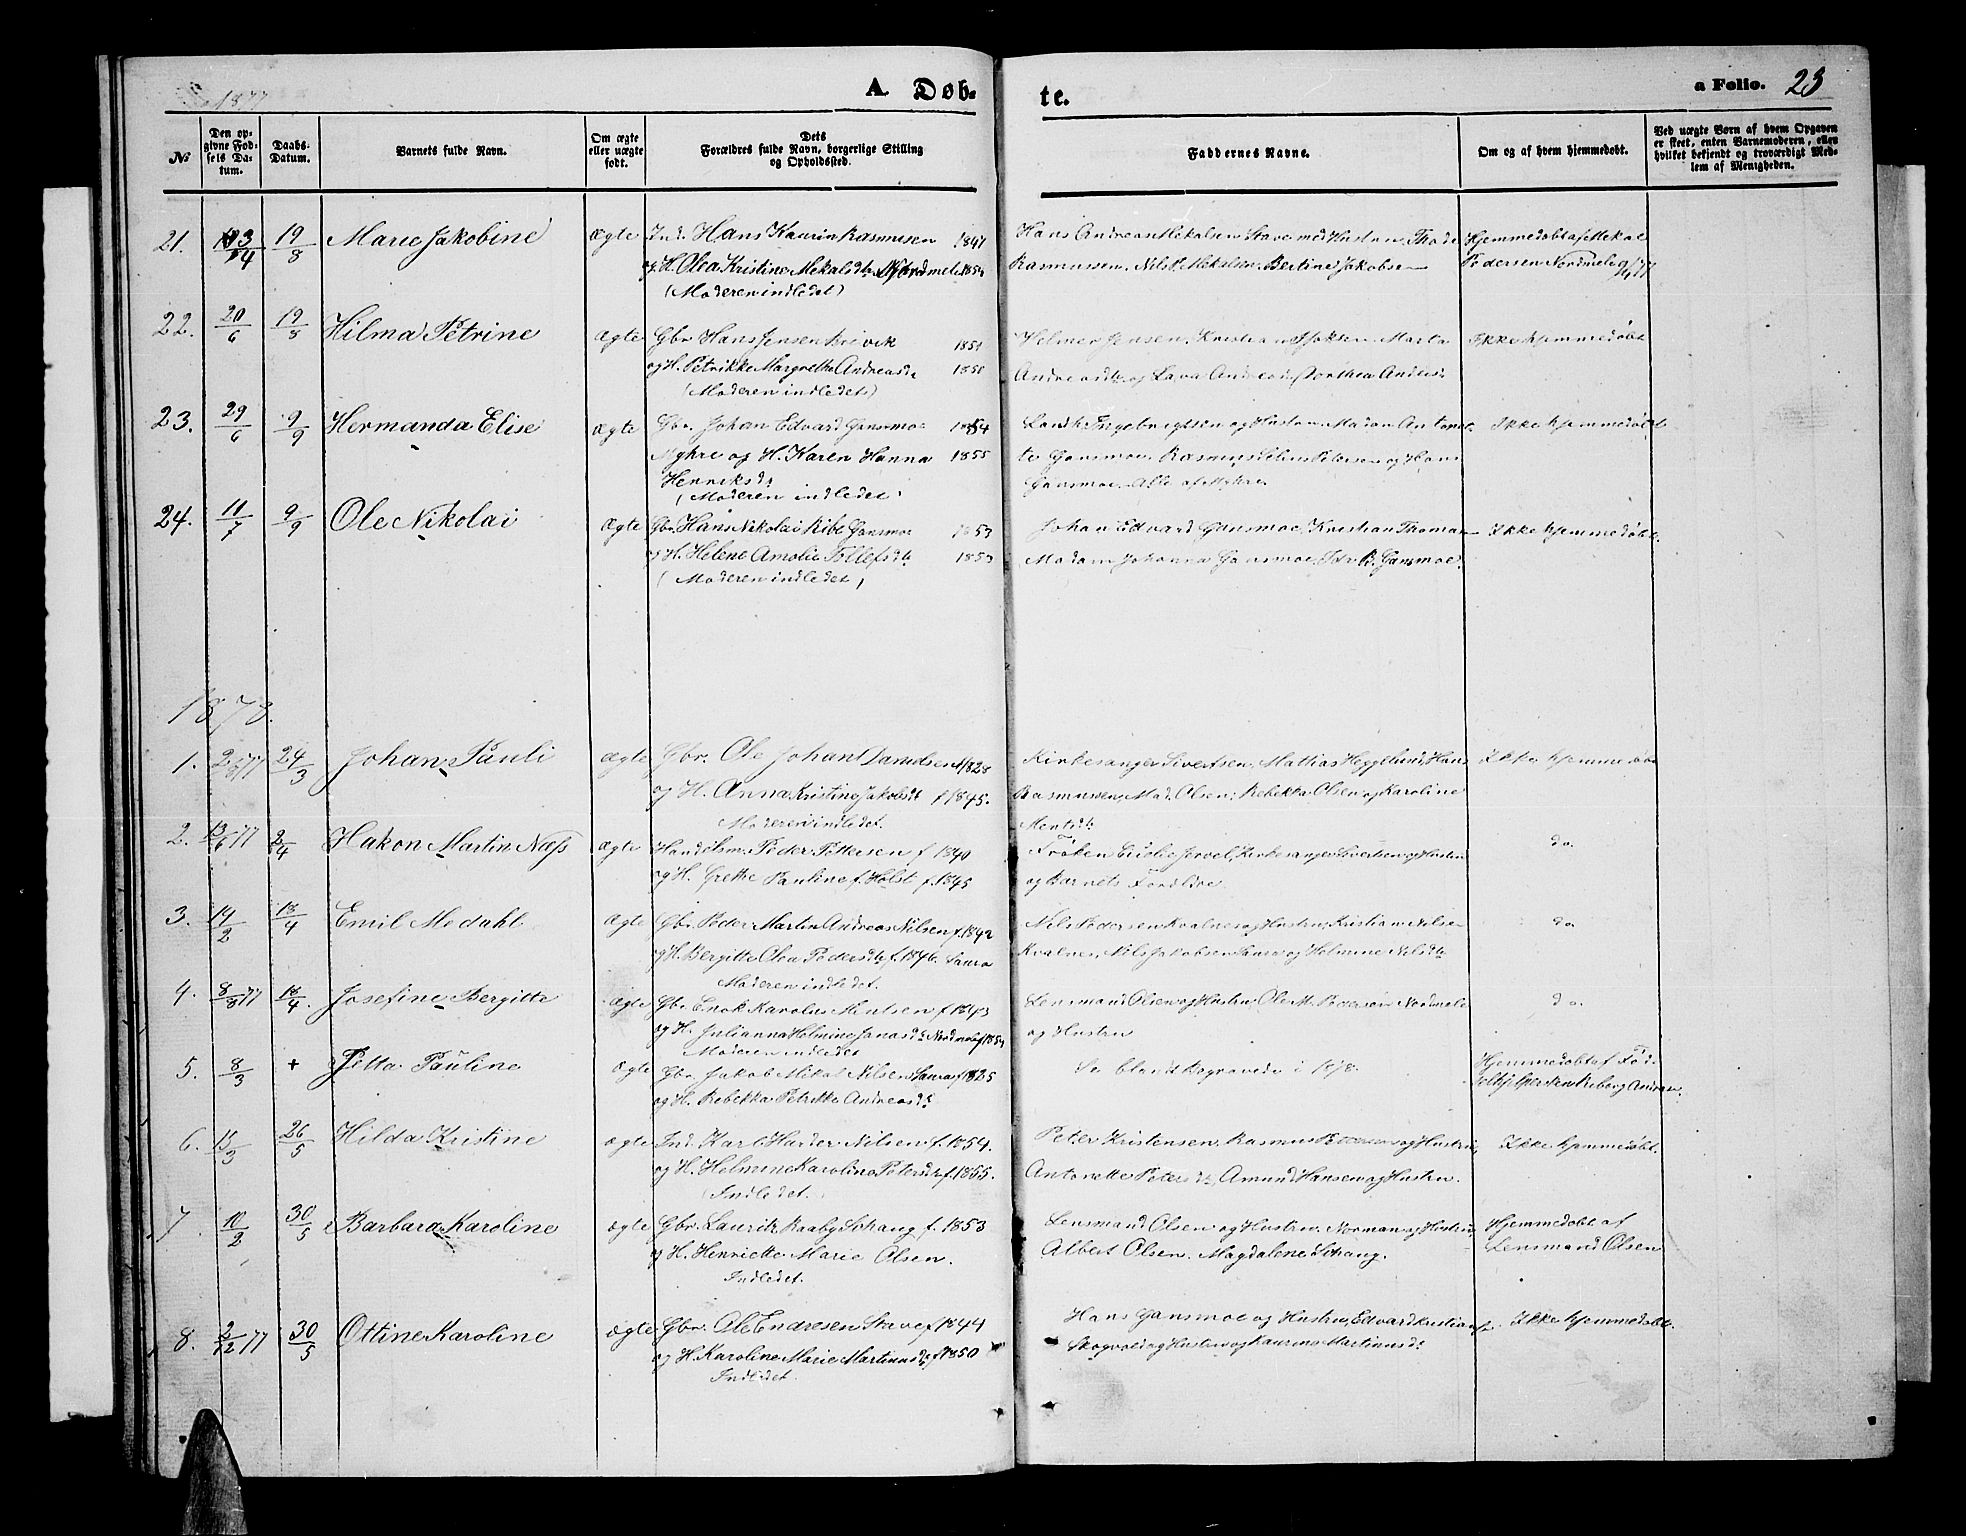 1877
A. Døb-
te.
a Folio. 23
No
Den op-
givne Fød-
sels Da-
tum.
Daabs-
Datum.
Barnets fulde Navn.
Om ægte
eller uægte
født.
Dets
Forældres fulde Navn, borgerlige Stilling
og Opholdssted.
Faddernes Navne.
Om og af hvem hjemmedøbt.
Ved uægte Børn af hvem Opgaven
er skeet, enten Barnemoderen, eller
hvilket bekjendt og troværdigt Med-
lem af Menigheden.
21. 19/8 Marie Jakobine ægte Ind. Hans Kaurin Rasmusen 1847
og H. Olea Kristine Mekalsdt. Nordmele
(Moderen indledet)
Hans Andreas Mekalsen Stave med Hustru, Thode
Rasmussen, Nils P. Mekalsen, Bertine Jakobsen
Hjemmedøbt af Mekal
Pedersen Nordmele
22. 20/6 19/8 Hilma Petrine ægte Gbr. Hans Jensen 1851
og H. Petrikke Margrethe Andreasdt. 1858
(Moderen indledet)
Helmer Jensen, Kristian Marta
Andreasdt. og Lava Dorthea
Ikke hjemmedøbt
23. 29/6 9/9 Hermanda Elise ægte Gbr. Johan Edvard Gansmoe 1854
Myhre og H. Karen Hanna 1855
Henriksdt.
(Moderen indledet)
Ingebrigtsen og Hustru, Madam Antonet-
te Gansmoe, Rasmus Petersen og Hans
Gansmoe. Alle af Myhre
Ikke hjemmedøbt
24. 11/7 9/9 Ole Nikolai ægte Gbr. Hans Nikolai Ribe Gansmoe 1853
og H. Helene Amalie Tollefsdt. 1853
(Moderen indledet)
Johan Edvard Gansmoe, Kristian Thomas
Madam Johanna Gansmoe, B. Gansmoe.
Ikke hjemmedøbt.
1878.
1. 24/3 Johan Pauli ægte Gbr. Ole Johan Danielsen f. 1828
og H. Anna Kristine Jakobsdt f 1845.
Moderen indledet.
Kirkesanger Sivertsen, Mathias Heggelund, Hans
Rasmussen, Mad. Olsen, Rebekka Olsen og Karoline
Mentsdt.
Ikke hjemmedøbt
2. 13/6 77 2/4 Hakon Martin Næss ægte Handelsm. Peder Pettersen f 1840
og H. Grethe Pauline f. Holst f. 1845
Frøken Jervel, Kirkesanger Sivertsen og Hustru
og Barnets Forældre.
do.
3. 14/2 18/4 Emil Medahl ægte Gbr. Peder Martin Andreas Nilsen f. 1842
og H. Bergitte Olea Pedersdt. f. 1846. Saura
Moderen indledet.
Nils Pedersen Kvalnes og Hustru, Kristian Nilsen
Kvalnes, Nils Jakobsen Saura og Helmine Nilsdt.
do
4. 8/8 77 18/4. Josefine Bergitte ægte Gbr. Enok Karolus Mentsen f 1843
og H. Julianna Helmine Jonasdt. Nordmele f 1854
Moderen indledet
Lensmand Olsen og Hustru, Ole M. Pedersen Nordmele
og Hustru
do.
5. 8/3 + Jetta Pauline ægte Gbr. Jakob Mikal Nilsen Saura f 1825
og H. Rebekka Petrikke Andreasdt.
Se blandt Begravede i 1878.
Hjemmedøbt af Fød-
selshjelpersken
6. 15/3 26/5 Hilda Kristine ægte Ind. Karl Harder Nilsen f. 1854.
og H. Helmine Karoline Petersdt. f. 1855.
(Indledet.)
Peter Kristensen, Rasmus Pedersen og Hustru,
Antonette Petersdt., Amund Hansen og Hustru.
Ikke hjemmedøbt.
7. 10/2 30/5 Barbara Karoline ægte Gbr. Lauritz Raaby Schang f. 1853
og H. Henriette Marie Olsen.
Indledet.
Lensmand Olsen og Hustru, Norman og Hustru,
Albert Olsen, Magdalene Schang.
Hjemmedøbt af
Lensmand Olsen
8. 2/12 77 30/5 Ottine Karoline ægte Gbr. Ole Endresen Stave f. 1844
og H. Karoline Marie Martinusdt. f 1850
Indledet.
Hans Gansmoe og Hustru, Edvard Kristian
Skogvold og Hustru og Kaurine Martinusdt.
Ikke hjemmedøbt.